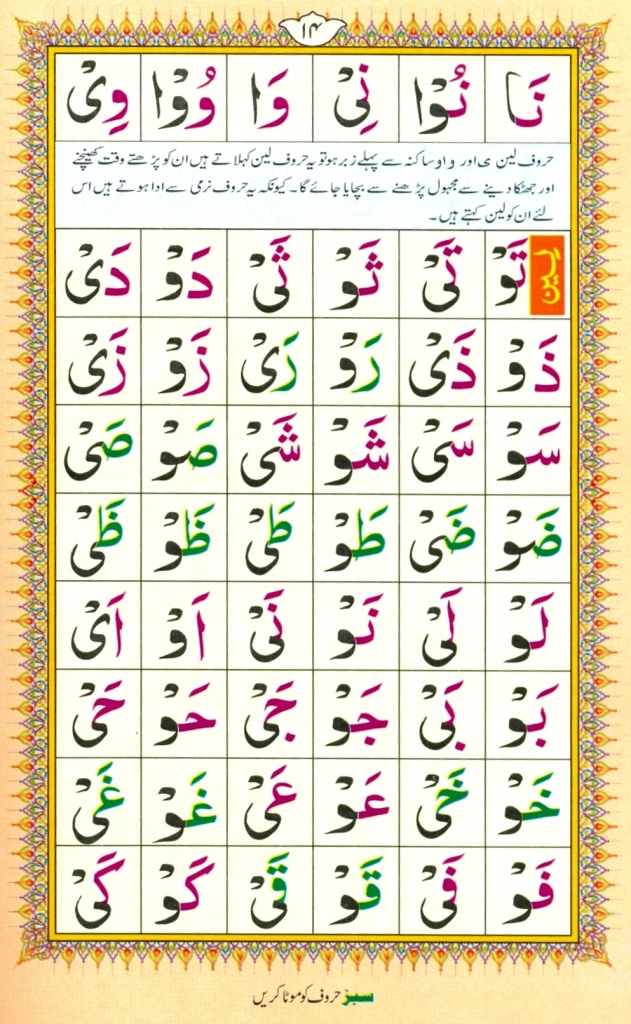 ۱۴
نَا نُوْا نِىْ وَا وُوْا وِىْ
حروف لین ی اور و او ساکنہ سے پہلے زبر ہو تو یہ حروف لین کہلاتے ہیں ان کو پڑھتے وقت کھینچنے
اور جھٹکا دینے سے مجہول پڑھنے سے بچایا جائے گا۔ کیونکہ یہ حروف نرمی سے ادا ہوتے ہیں اس
لئے ان کو لین کہتے ہیں۔
لین
تَوْ تَىْ ثَوْ ثَىْ دَوْ دَىْ
ذَوْ ذَىْ رَوْ رَىْ زَوْ زَىْ
سَوْ سَىْ شَوْ شَىْ صَوْ صَىْ
ضَوْ ضَىْ طَوْ طَىْ ظَوْ ظَىْ
لَوْ لَىْ نَوْ نَىْ اَوْ اَىْ
بَوْ بَىْ جَوْ جَىْ حَوْ حَىْ
خَوْ خَىْ عَوْ عَىْ غَوْ غَىْ
فَوْ فَىْ قَوْ قَىْ كَوْ كَىْ
سبز حروف کو موٹا کریں